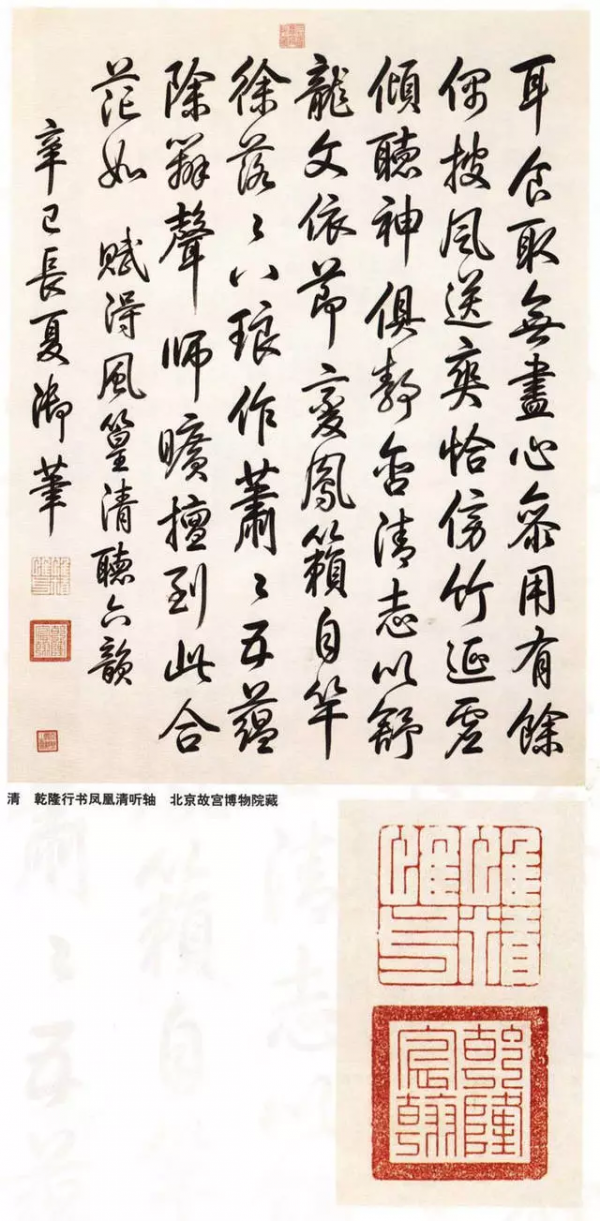 耳食取無盡心參用有餘
偶披風送爽恰傍竹延虛
傾聽神俱靜含清志以舒
龍文依節變鳳籟自竿
徐落〻八琅作蕭〻五蘊
除辨聲師曠擅到此合
茫如 賦得風篁清聽六韻
辛巳長夏御筆
清 乾隆行书凤凰清听轴 北京故宫博物院藏
惟精
惟一
乾隆
宸翰